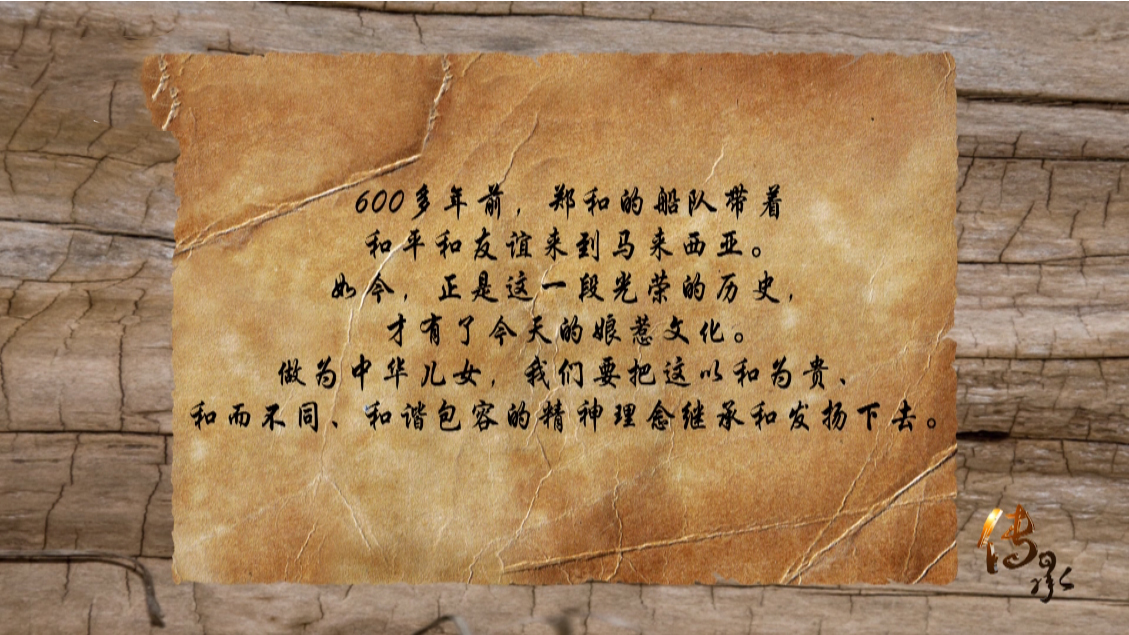 600多年前，郑和的船队带着
和平和友谊来到马来西亚。
如今，正是这一段光荣的历史，
才有了今天的娘惹文化。
做为中华儿女，我们要把这以和为贵、
和而不同、和谐包容的精神理念继承和发扬下去。
传承